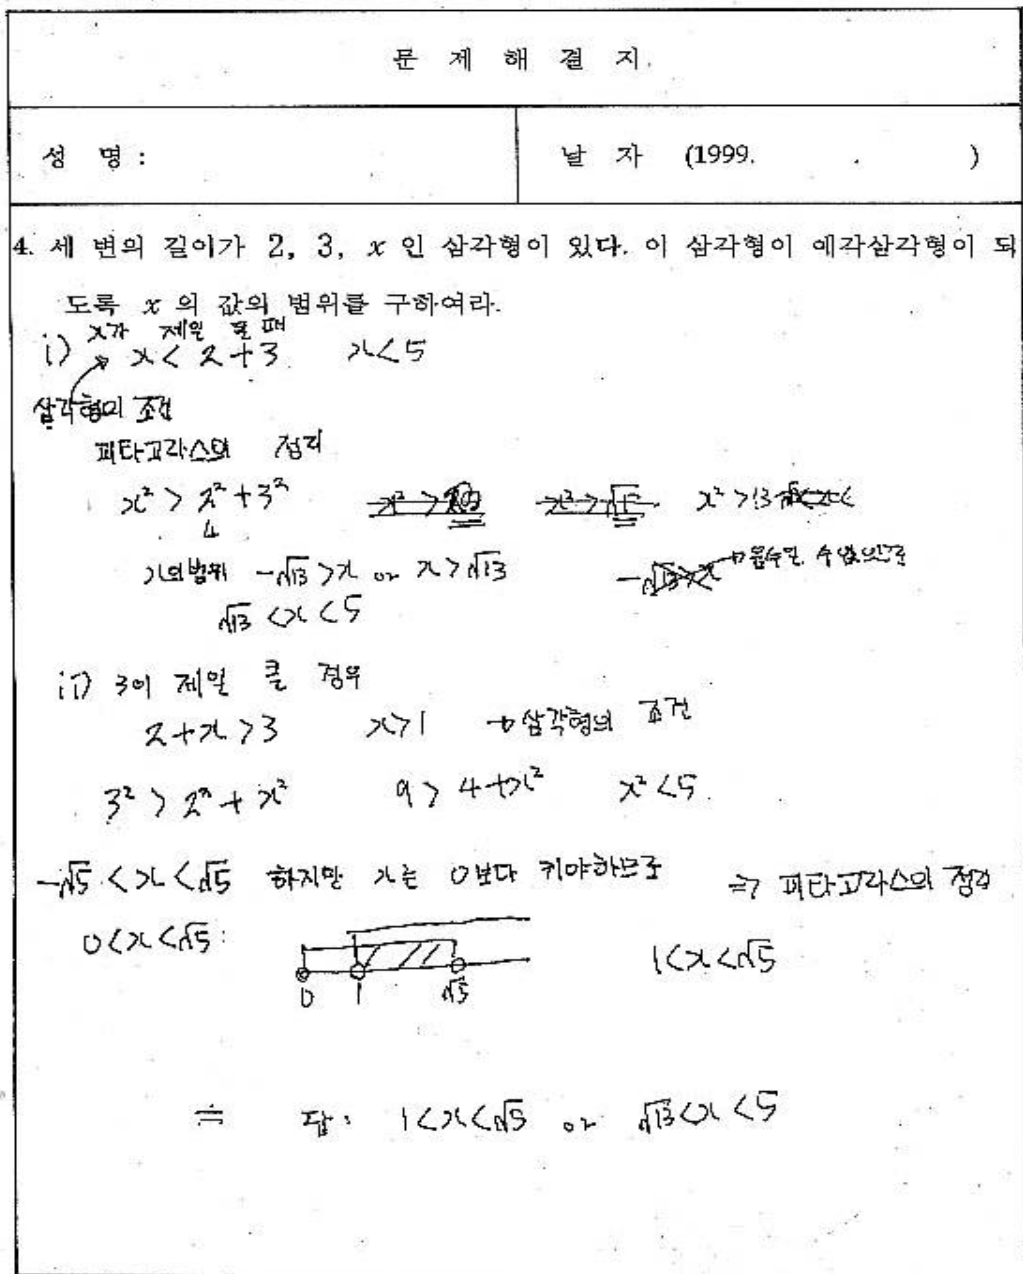 문 제 해 결 지.
성 명 :
날 자 (1999. . )
4. 세 변의 길이가 2, 3, x 인 삼각형이 있다. 이 삼각형이 예각삼각형이 되
도록 x 의 값의 범위를 구하여라.
i) x가 제일 클 때
x < 2 + 3 x < 5
삼각형의 조건
피타고라스의 정리
x² > 2² + 3² x² > 13
4
x의 범위 -√13 > x or x > √13 -√13 > x → 음수일 수 없으므로
√13 < x < 5
ii) 3이 제일 클 경우
2 + x > 3 x > 1 → 삼각형의 조건
3² > 2² + x² 9 > 4 + x² x² < 5.
-√5 < x < √5 하지만 x는 0보다 커야하므로 ⇒ 피타고라스의 정리
0 < x < √5 :
0 1 √5
1 < x < √5
답 : 1 < x < √5 or √13 < x < 5